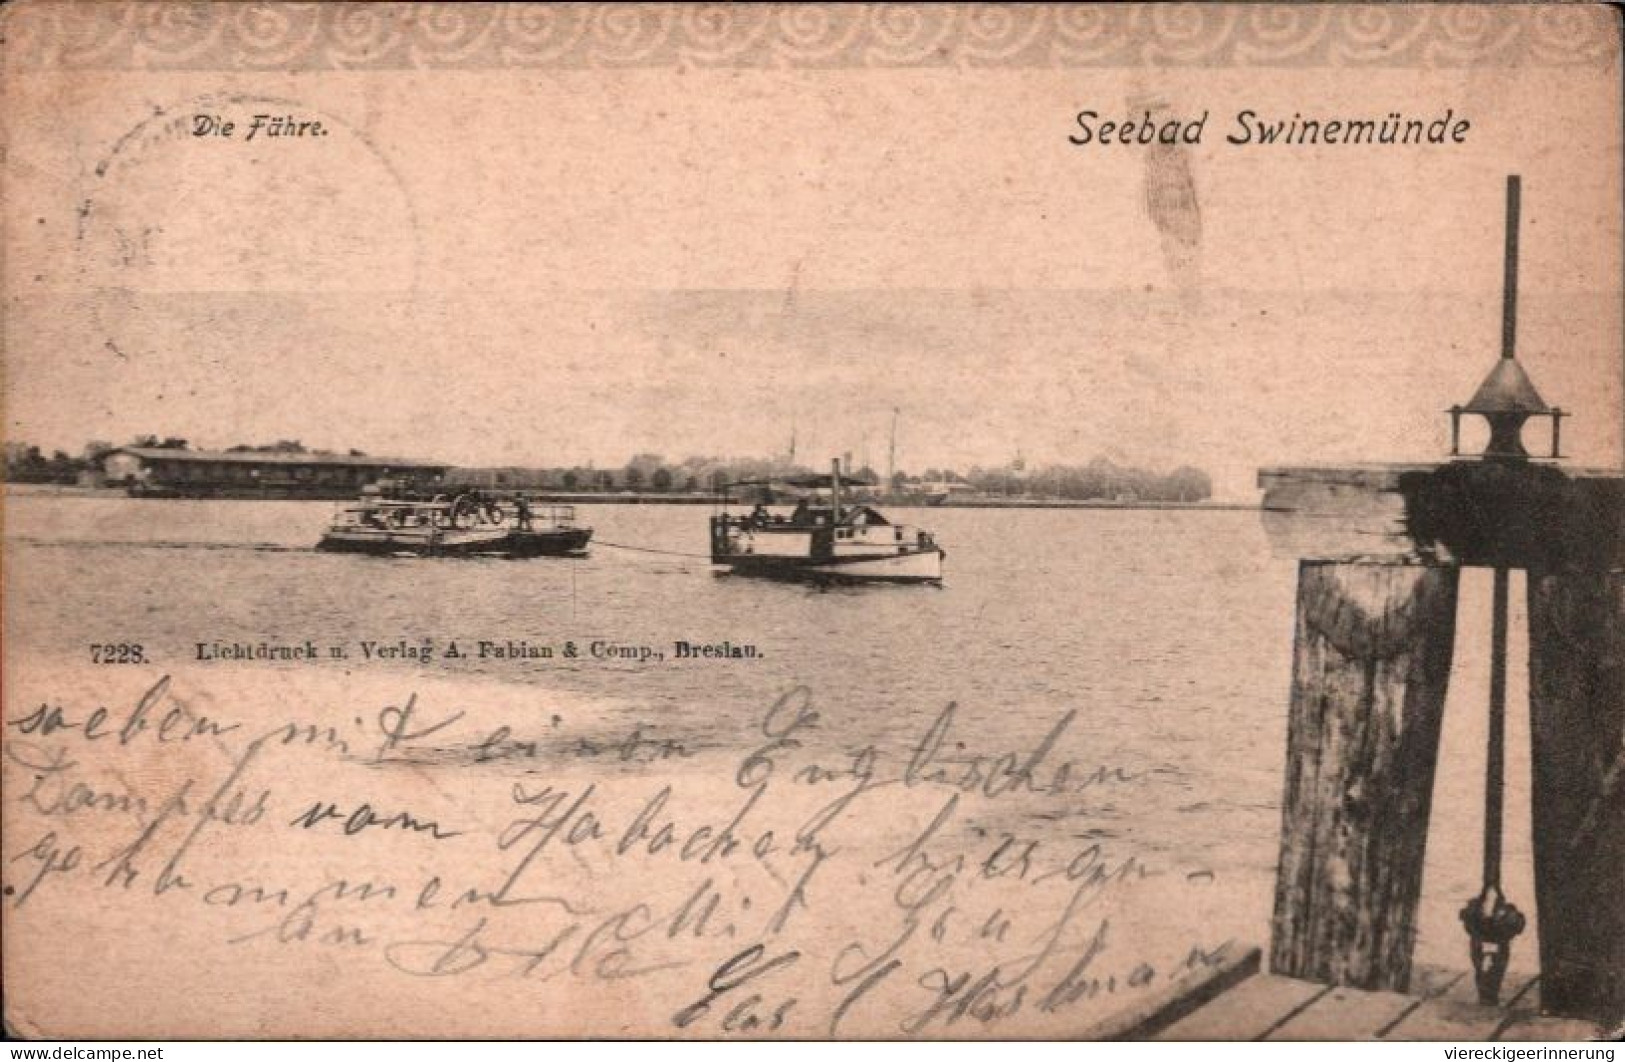 Die Fähre.
Seebad Swinemünde
7228. Lichtdruck u. Verlag A. Fabian & Comp., Breslau.
soeben mit einen Englischen
Dampfer vom
gekommen Mit Gruß
an Alle
www.delcampe.net
viereckigeerinnerung